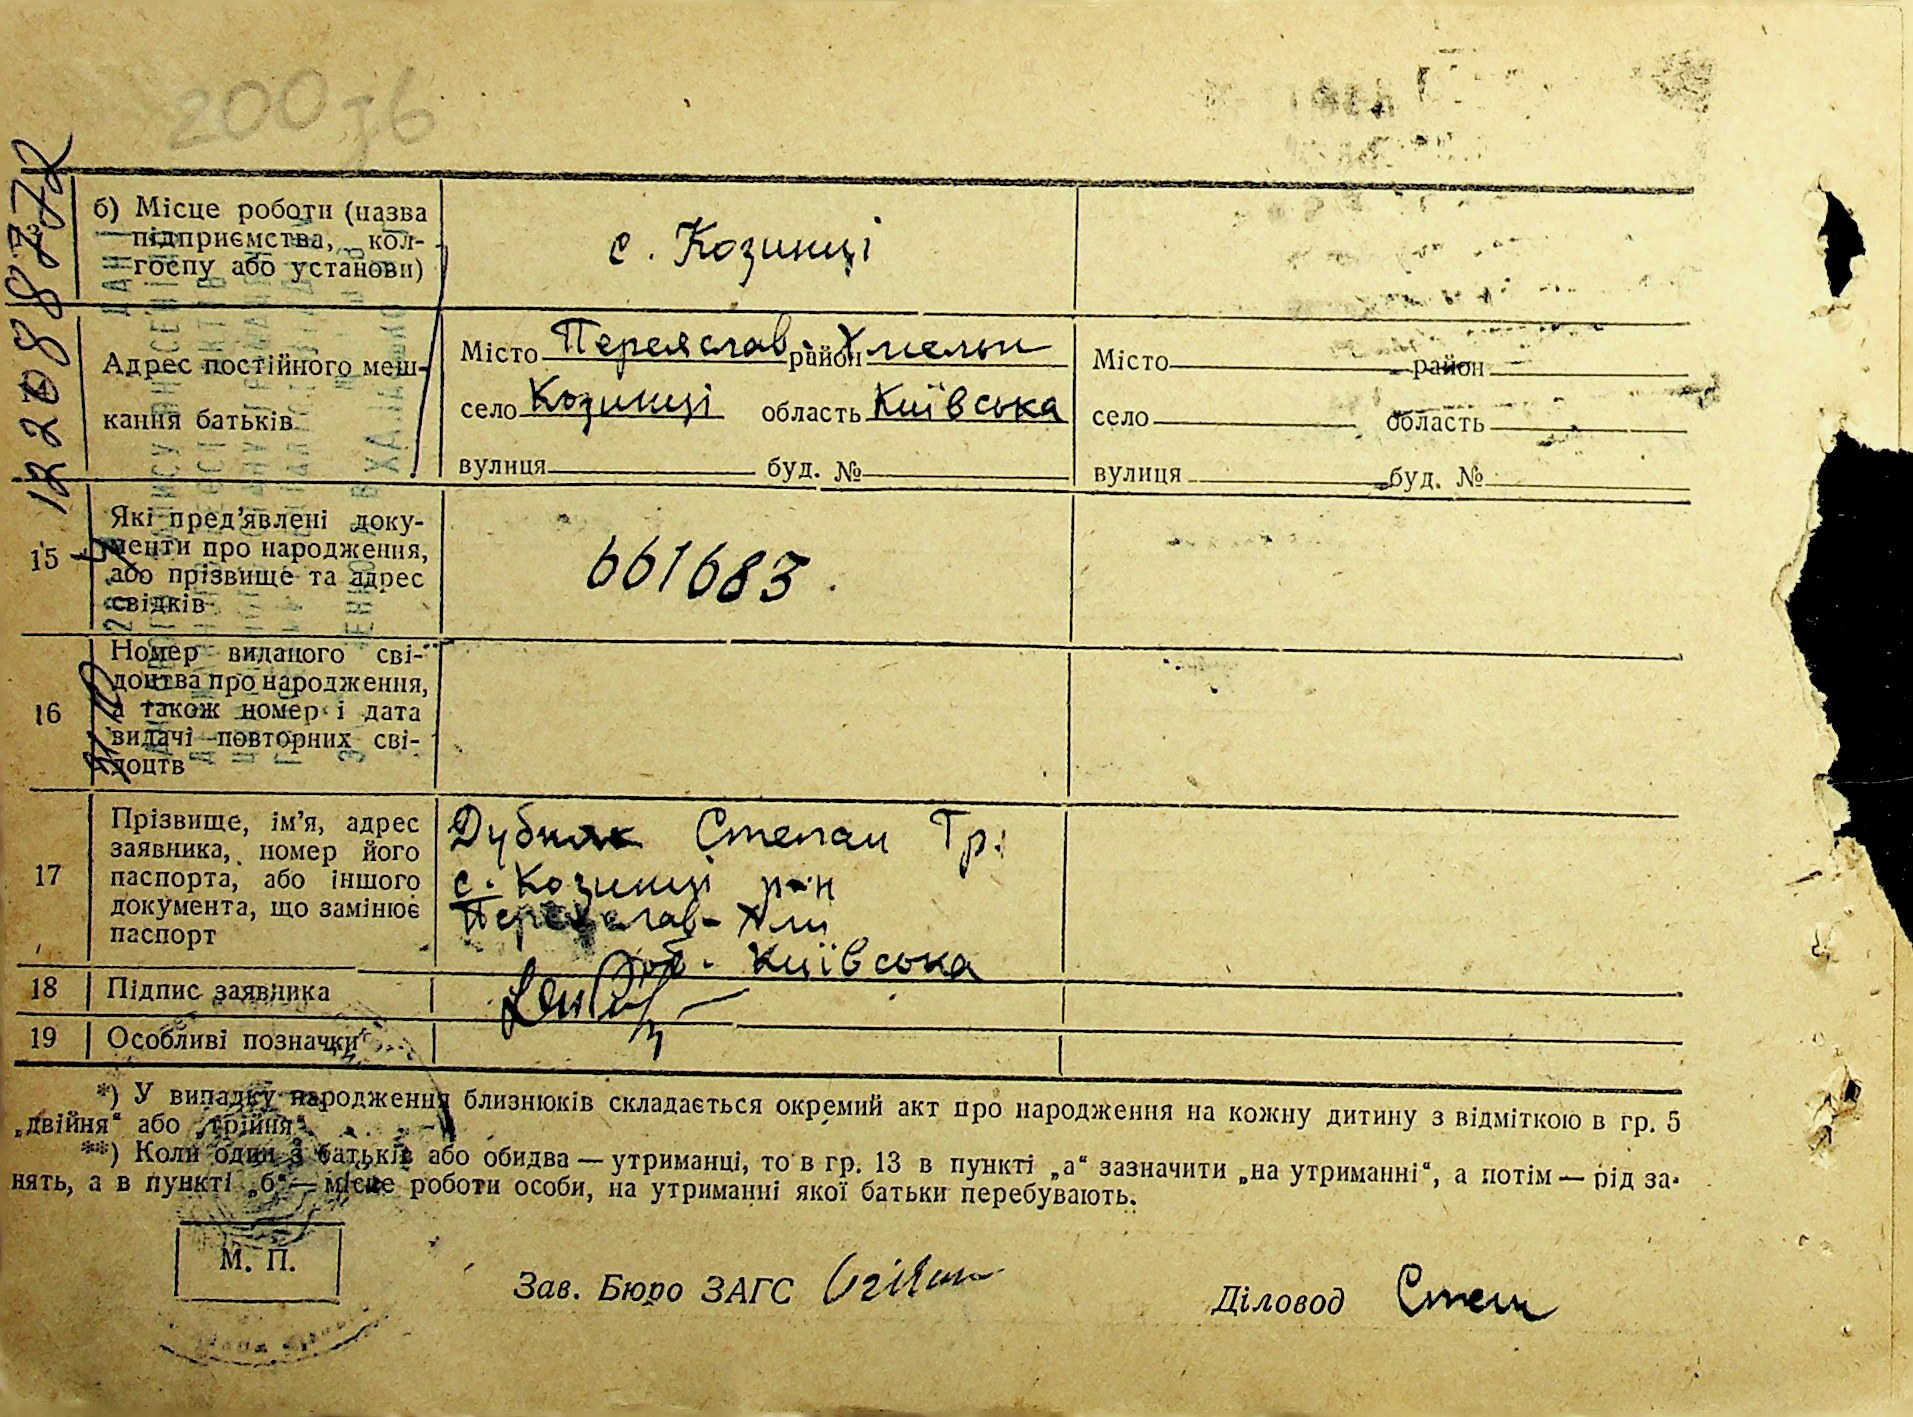 200 зв
12208872
б) Місце роботи (назва
підприємства, кол-
госпу або установи)
с. Козинці
Адрес постійного меш-
кання батьків
Місто Переяслав- район Хмельн
село Козинці область Київська
вулиця буд. №
Місто район
село область
вулиця буд. №
15
Які пред'явлені доку-
менти про народження,
або прізвище та адрес
свідків
661683
16
Номер виданого сві-
доцтва про народження,
а також номер і дата
видачі повторних сві-
доцтв
17
Прізвище, ім'я, адрес
заявника, номер його
паспорта, або іншого
документа, що замінює
паспорт
Дубняк Степан Гр.
с. Козинці р-н
Переяслав-Хм
об. Київська
18 Підпис заявника
19 Особливі позначки
*) У випадку народження близнюків складається окремий акт про народження на кожну дитину з відміткою в гр. 5
„двійня“ або „трійня“.
**) Коли один з батьків або обидва — утриманці, то в гр. 13 в пункті „а“ зазначити „на утриманні“, а потім — рід за-
нять, а в пункті „б“ — місце роботи особи, на утриманні якої батьки перебувають.
М. П.
Зав. Бюро ЗАГС
Діловод